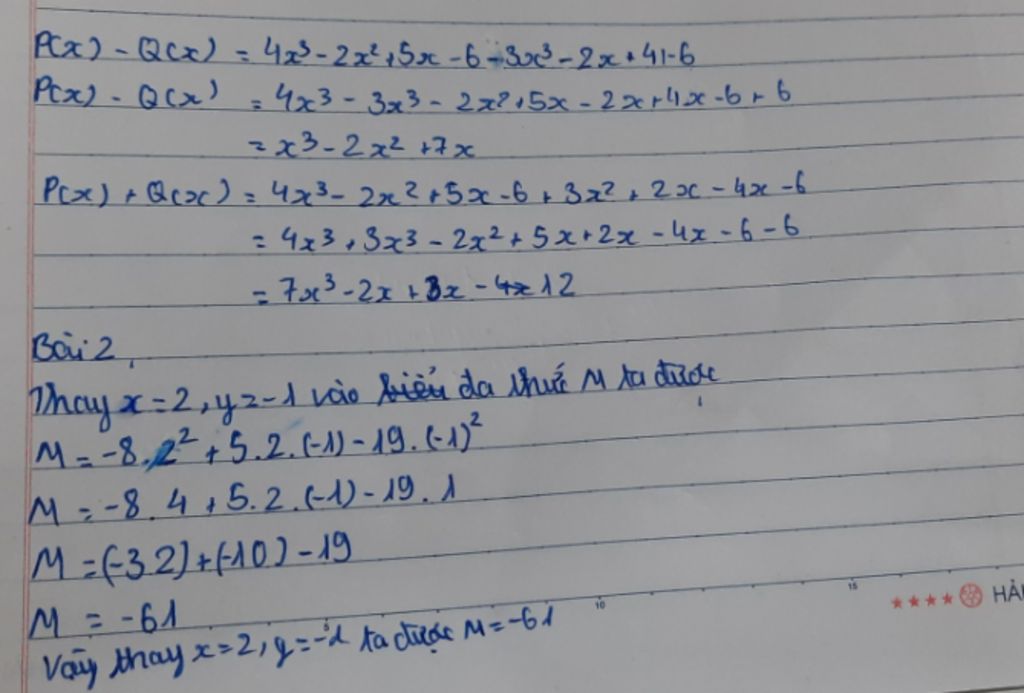 P(x) - Q(x) = 4x³ - 2x² + 5x - 6 - 3x³ - 2x + 41 - 6
P(x) - Q(x) = 4x³ - 3x³ - 2x² + 5x - 2x + 4x - 6 + 6
= x³ - 2x² + 7x
P(x) + Q(x) = 4x³ - 2x² + 5x - 6 + 3x² + 2x - 4x - 6
= 4x³ + 3x³ - 2x² + 5x + 2x - 4x - 6 - 6
= 7x³ - 2x + 3x - 4x 12
Bài 2
Thay x = 2, y = -1 vào biểu đa thức M ta được
M = -8.2² + 5.2.(-1) - 19.(-1)²
M = -8.4 + 5.2.(-1) - 19.1
M = (-32) + (-10) - 19
M = -61
Vậy thay x = 2, y = -1 ta được M = -61
5 10 15
HẢI